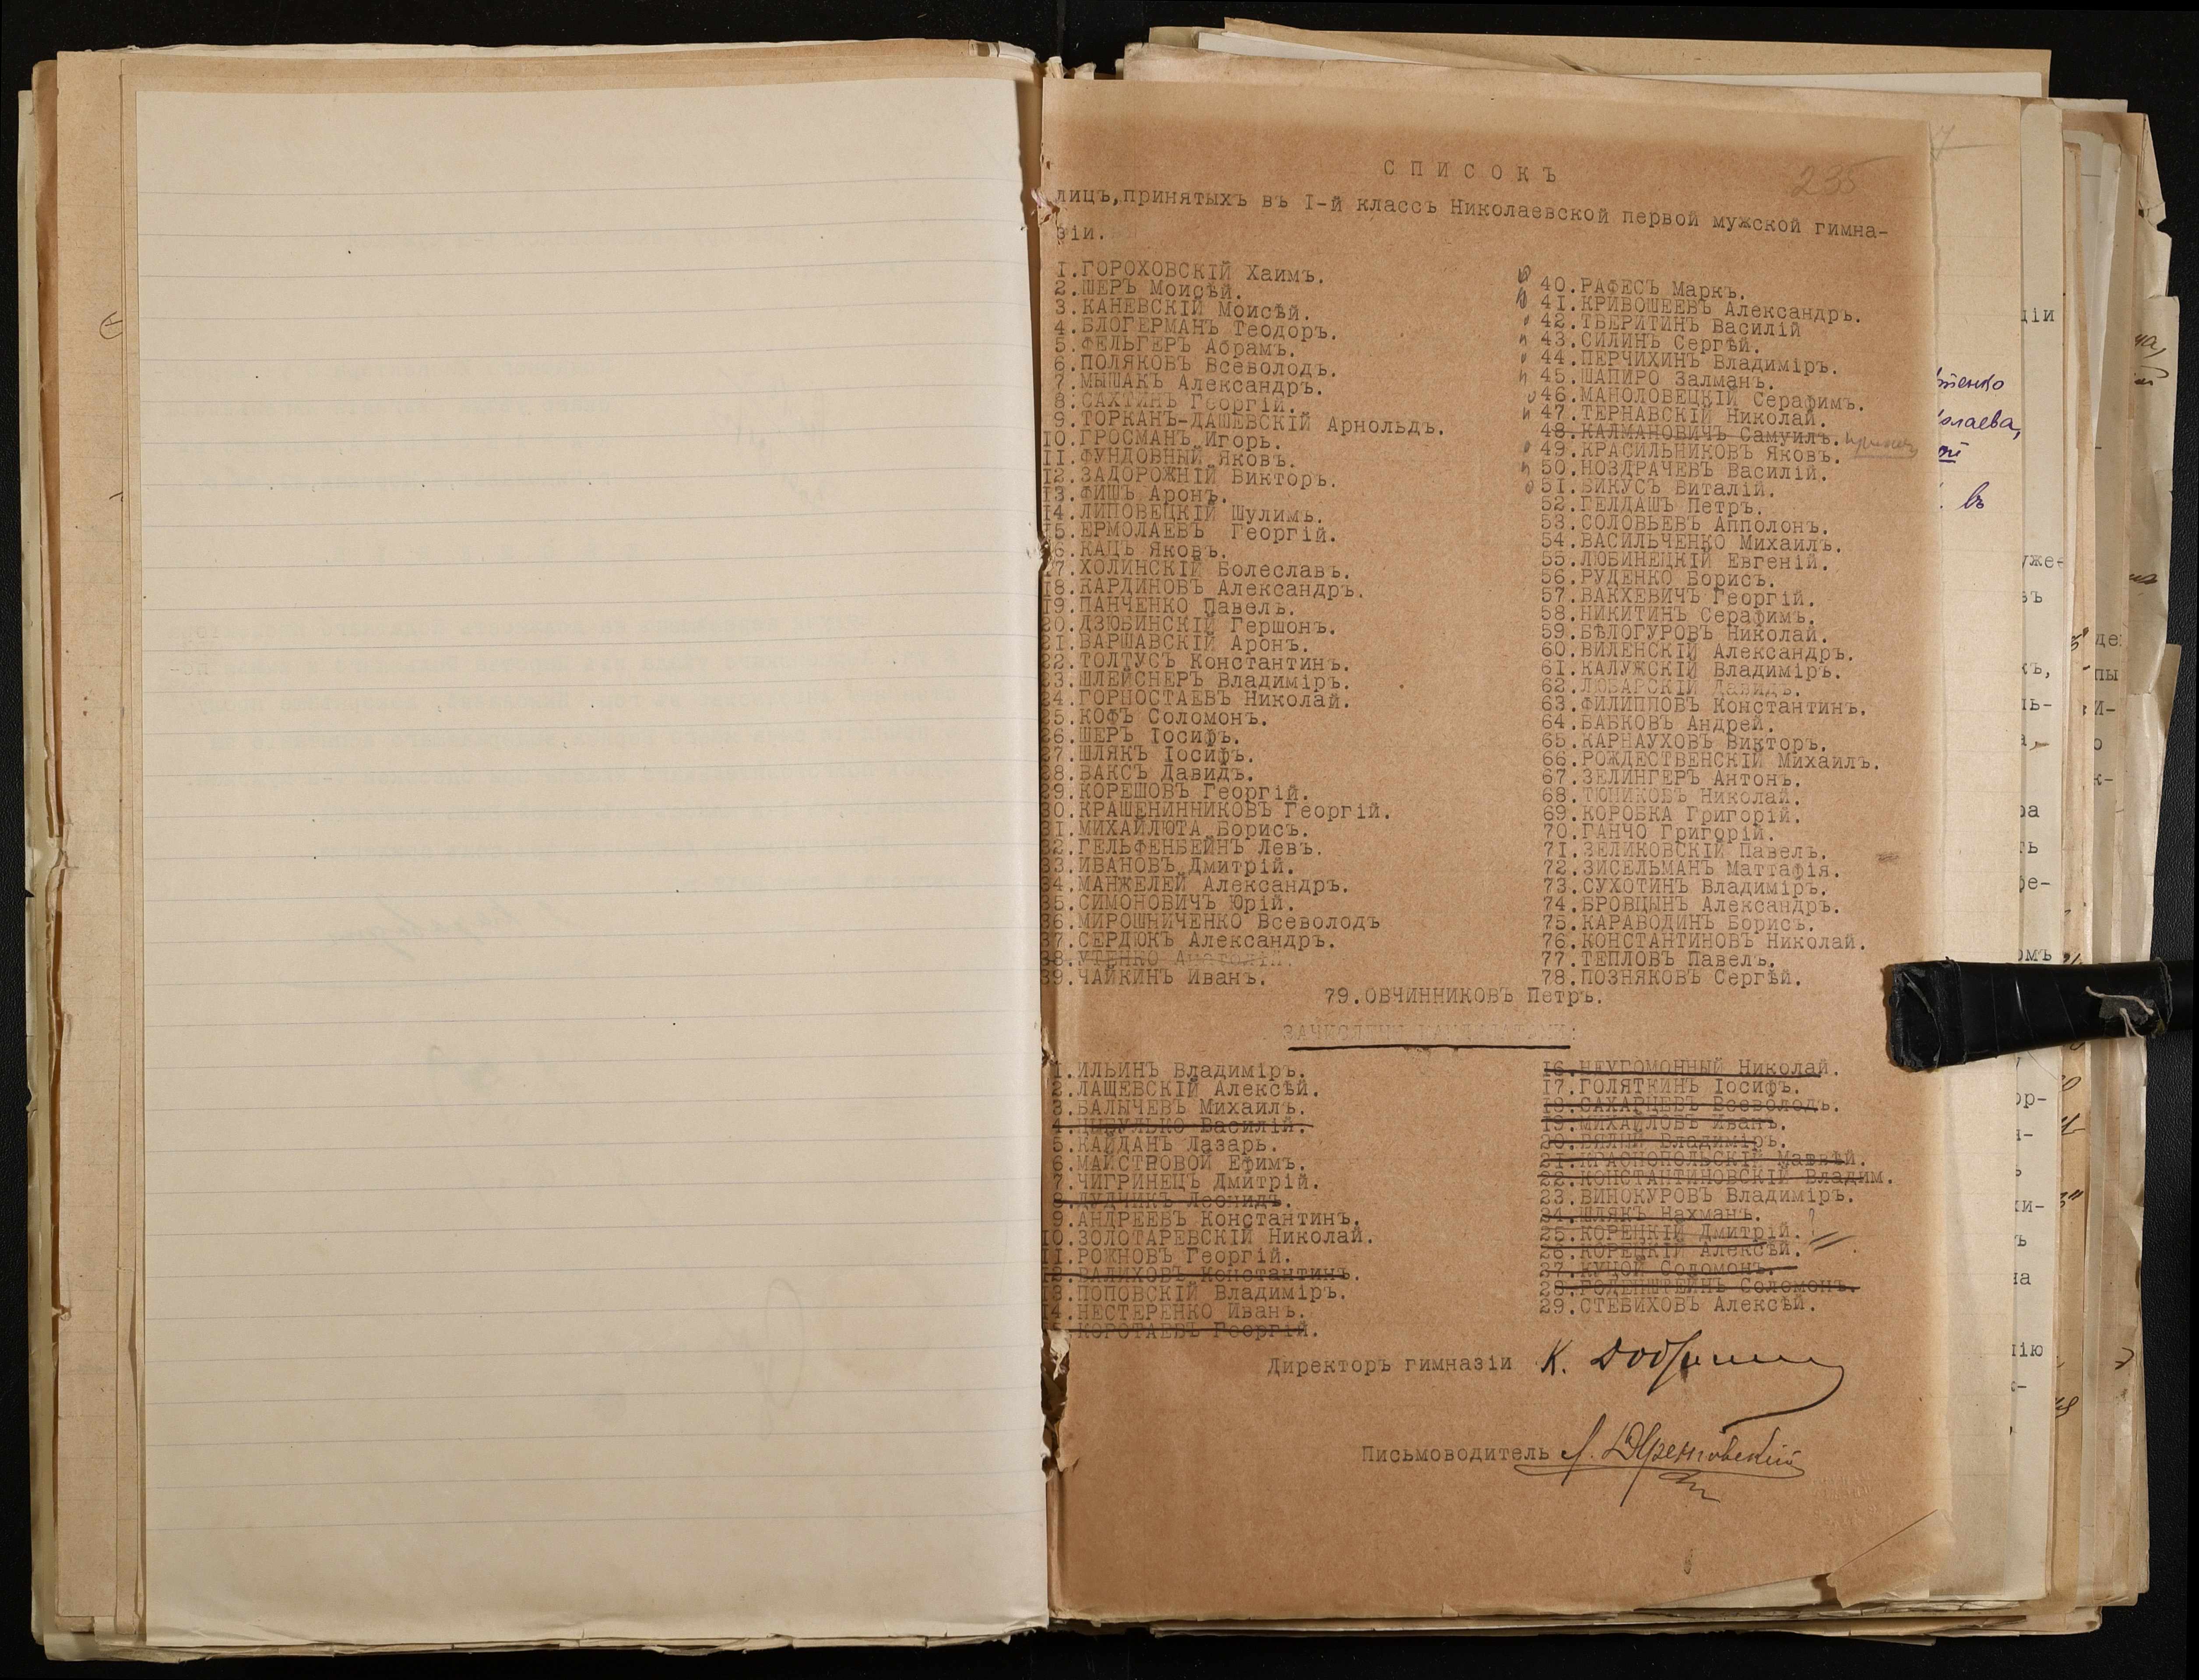 235
СПИСОКЪ
лицъ, принятыхъ въ I-й классъ Николаевской первой мужской гимна-
зіи.
1. ГОРОХОВСКІЙ Хаимъ.
2. ШЕРЪ Моисѣй.
3. КАНЕВСКІЙ Моисѣй.
4. БЛОГЕРМАНЪ Теодоръ.
5. ФЕЛЬГЕРЪ Абрамъ.
6. ПОЛЯКОВЪ Всеволодъ.
7. МЫШАКЪ Александръ.
8. САХТИНЪ Георгій.
9. ТОРКАНЪ-ДАШЕВСКІЙ Арнольдъ.
10. ГРОСМАНЪ Игорь.
11. ФУНДОВНЫЙ Яковъ.
12. ЗАДОРОЖНІЙ Викторъ.
13. ФИШЪ Аронъ.
14. ЛИПОВЕЦКІЙ Шулимъ.
15. ЕРМОЛАЕВЪ Георгій.
16. КАЦЪ Яковъ.
17. ХОЛИНСКІЙ Болеславъ.
18. КАРДИНОВЪ Александръ.
19. ПАНЧЕНКО Павелъ.
20. ДЗЮБИНСКІЙ Гершонъ.
21. ВАРШАВСКІЙ Аронъ.
22. ТОЛТУСЪ Константинъ.
23. ШЛЕЙСНЕРЪ Владиміръ.
24. ГОРНОСТАЕВЪ Николай.
25. КОФЪ Соломонъ.
26. ШЕРЪ Іосифъ.
27. ШЛЯКЪ Іосифъ.
28. ВАКСЪ Давидъ.
29. КОРЕШОВЪ Георгій.
30. КРАШЕНИННИКОВЪ Георгій.
31. МИХАЙЛЮТА Борисъ.
32. ГЕЛЬФЕНБЕЙНЪ Левъ.
33. ИВАНОВЪ Дмитрій.
34. МАНЖЕЛЕЙ Александръ.
35. СИМОНОВИЧЪ Юрій.
36. МИРОШНИЧЕНКО Всеволодъ
37. СЕРДЮКЪ Александръ.
38. УТЕНКО Анатолій.
39. ЧАЙКИНЪ Иванъ.
40. РАФЕСЪ Маркъ.
41. КРИВОШЕЕВЪ Александръ.
42. ТВЕРИТИНЪ Василій
43. СИЛИНЪ Сергѣй.
44. ПЕРЧИХИНЪ Владиміръ.
45. ШАПИРО Залманъ.
46. МАНОЛОВЕЦКІЙ Серафимъ.
47. ТЕРНАВСКІЙ Николай.
48. КАЛМАНОВИЧЪ Самуилъ.
49. КРАСИЛЬНИКОВЪ Яковъ.
50. НОЗДРАЧЕВЪ Василій.
51. БИКУСЪ Виталій.
52. ГЕЛДАШЪ Петръ.
53. СОЛОВЬЕВЪ Апполонъ.
54. ВАСИЛЬЧЕНКО Михаилъ.
55. ЛЮБИНЕЦКІЙ Евгеній.
56. РУДЕНКО Борисъ.
57. ВАКХЕВИЧЪ Георгій.
58. НИКИТИНЪ Серафимъ.
59. БѢЛОГУРОВЪ Николай.
60. ВИЛЕНСКІЙ Александръ.
61. КАЛУЖСКІЙ Владиміръ.
62. ЛЮБАРСКІЙ Давидъ.
63. ФИЛИППОВЪ Константинъ.
64. БАБКОВЪ Андрей.
65. КАРНАУХОВЪ Викторъ.
66. РОЖДЕСТВЕНСКІЙ Михаилъ.
67. ЗЕЛИНГЕРЪ Антонъ.
68. ТЮНИКОВЪ Николай.
69. КОРОБКА Григорій.
70. ГАНЧО Григорій.
71. ЗЕЛИКОВСКІЙ Павелъ.
72. ЗИСЕЛЬМАНЪ Маттафія.
73. СУХОТИНЪ Владиміръ.
74. БРОВЦЫНЪ Александръ.
75. КАРАВОДИНЪ Борисъ.
76. КОНСТАНТИНОВЪ Николай.
77. ТЕПЛОВЪ Павелъ.
78. ПОЗНЯКОВЪ Сергѣй.
79. ОВЧИННИКОВЪ Петръ.
ЗАЧИСЛЕНЫ КАНДИДАТАМИ:
1. ИЛЬИНЪ Владиміръ.
2. ЛАЩЕВСКІЙ Алексѣй.
3. БАЛЫЧЕВЪ Михаилъ.
4. ЦЫБУЛЬКО Василій.
5. КАЙДАНЪ Лазарь.
6. МАЙСТРОВОЙ Ефимъ.
7. ЧИГРИНЕЦЪ Дмитрій.
8. ДУДНИКЪ Леонидъ.
9. АНДРЕЕВЪ Константинъ.
10. ЗОЛОТАРЕВСКІЙ Николай.
11. РОЖНОВЪ Георгій.
12. ВАЛИХОВЪ Константинъ.
13. ПОПОВСКІЙ Владиміръ.
14. НЕСТЕРЕНКО Иванъ.
15. КОРОТАЕВЪ Георгій.
16. НЕУГОМОННЫЙ Николай.
17. ГОЛЯТКИНЪ Іосифъ.
18. САХАРЦЕВЪ Всеволодъ.
19. МИХАЙЛОВЪ Иванъ.
20. ВЯЛЫЙ Владиміръ.
21. КРАСНОПОЛЬСКІЙ Матвѣй.
22. КОНСТАНТИНОВСКІЙ Владим.
23. ВИНОКУРОВЪ Владиміръ.
24. ШЛЯКЪ Нахманъ.
25. КОРЕЦКІЙ Дмитрій.
26. КОРЕЦКІЙ Алексѣй.
27. КУЦОЙ Соломонъ.
28. РОДЕНШТЕЙНЪ Соломонъ.
29. СТЕБИХОВЪ Алексѣй.
Директоръ гимназіи К.
Письмоводитель